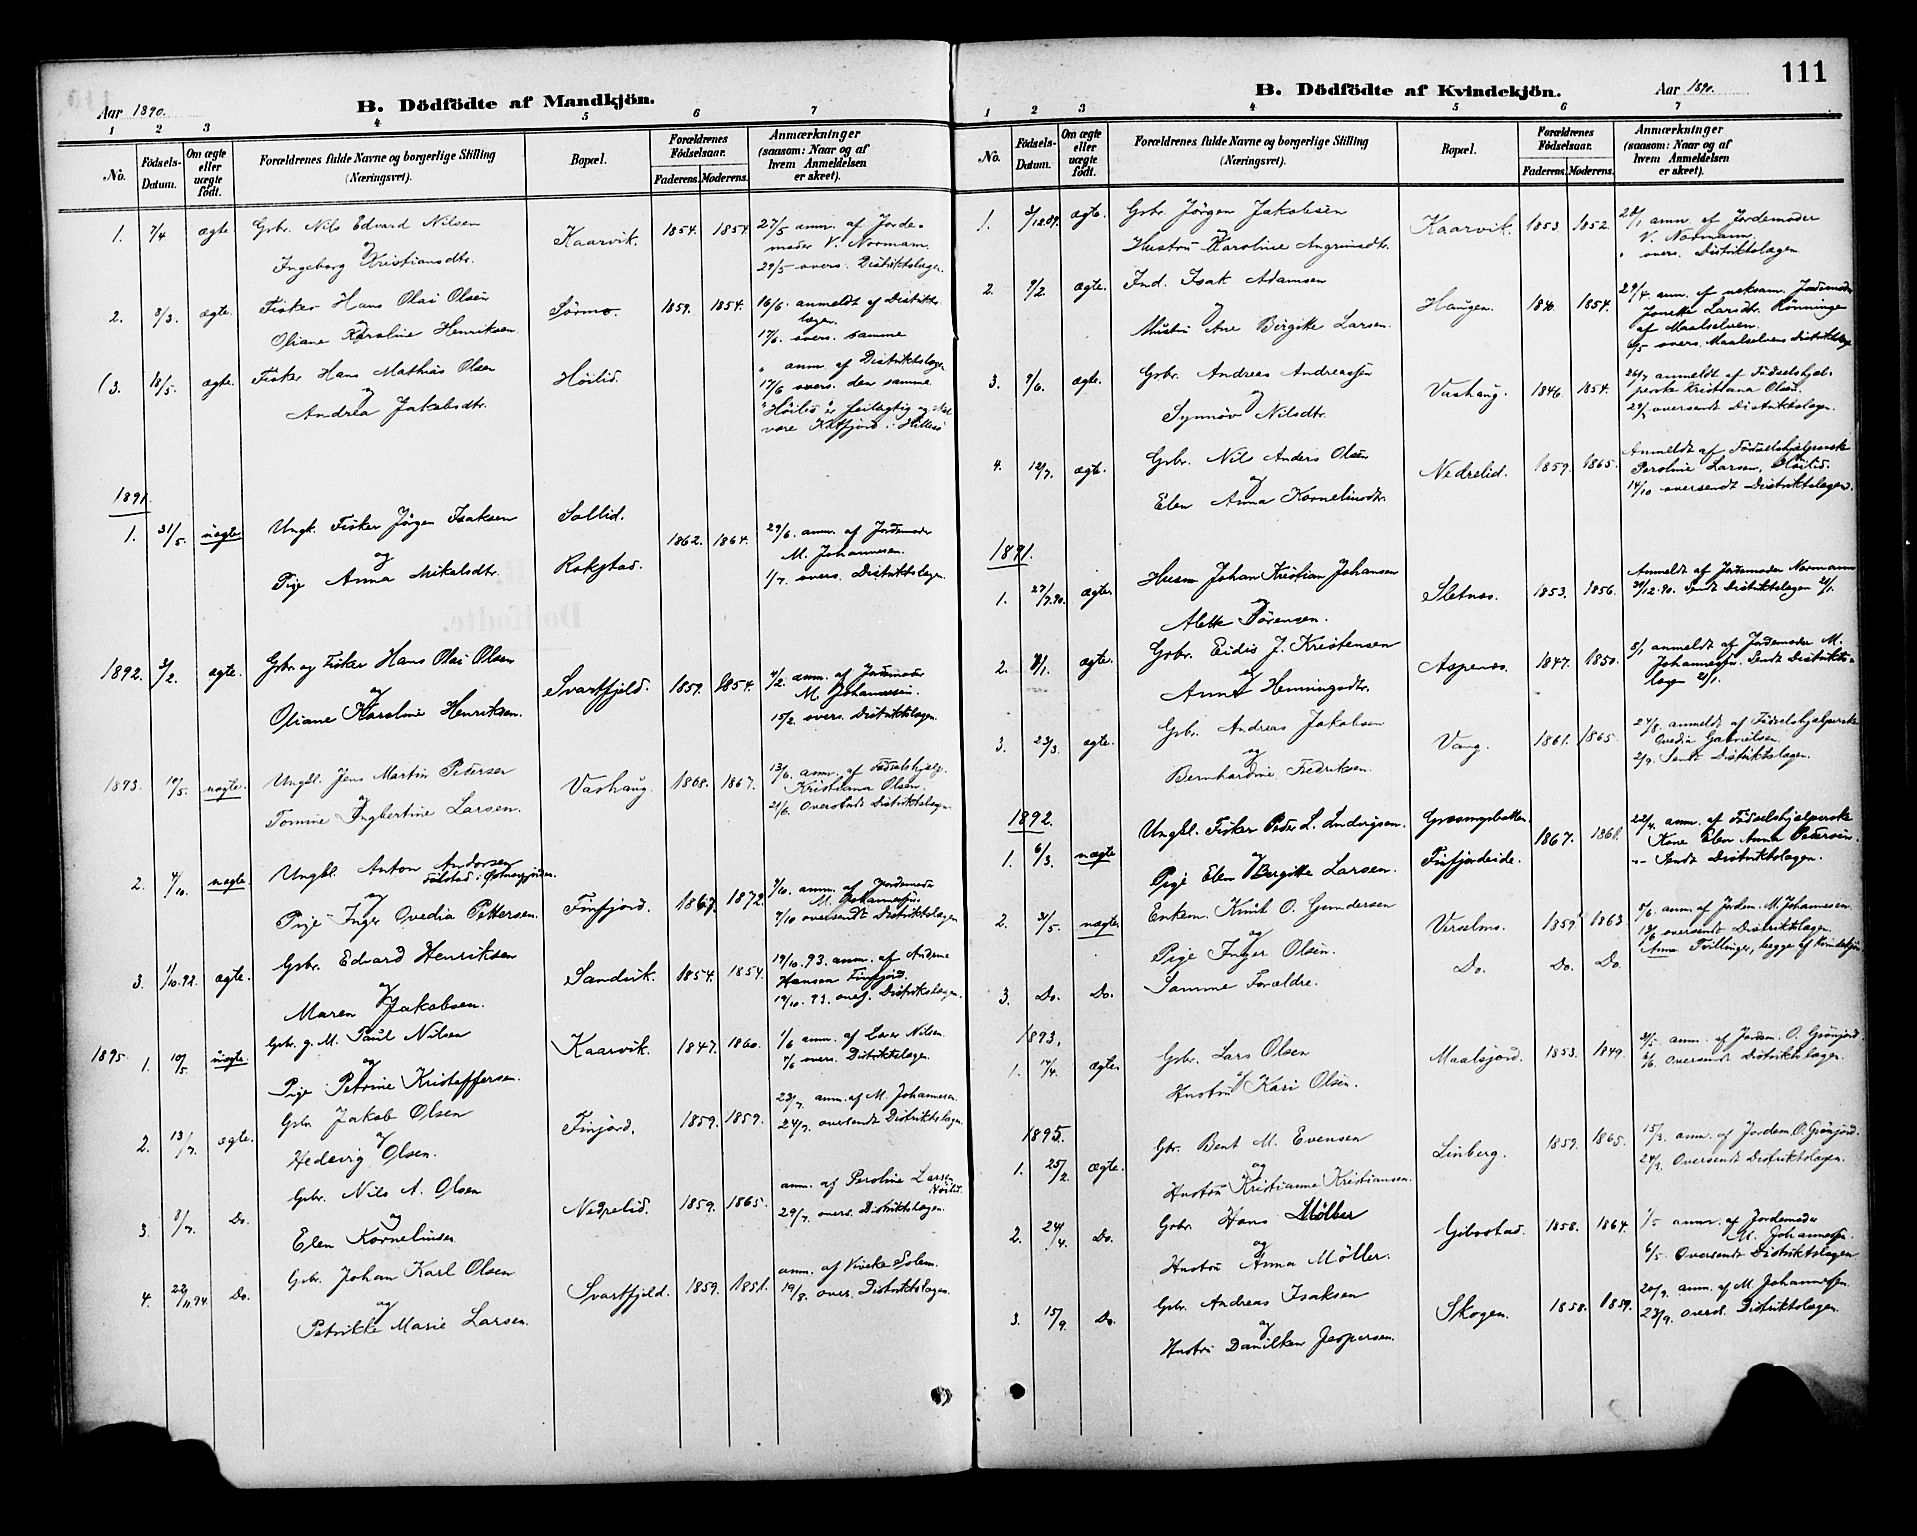 111
Aar 1890.
B. Dödfödte af Mandkjön.
1 2 3 4 5 6 7
No.
Födsels-Datum.
Om ægte eller uægte födt.
Forældrenes fulde Navne og borgerlige Stilling (Næringsvei).
Bopæl.
Forældrenes Födselsaar.
Faderens. Moderens.
Anmærkninger (saasom: Naar og af hvem Anmeldelsen er skeet).
1. 7/4 ægte Gbr. Nils Edvard Nilsen Kaarvik. 1854. 1854 27/5 anm. af Jorde-
og moder V. Normann.
Ingeborg Kristiansdtr. 29/5 overs. Distriktslægen.
2. 8/3. ægte. Fisker Hans Olai Olsen Sørmo. 1859. 1854. 16/6. anmeldt af Distrikts
og lægen.
Oliane Karoline Henriksen 17/6. overs. samme
3. 18/5. ægte. Fisker Hans Mathias Olsen Höilid. " anm. af Distriktslægen
og 17/6 overs. den samme
Andrea Jakobsdtr. "Höilid" er feilagtig og skal
være Katfjord i Hillesö
1891.
1. 31/5. uægte. Ungk. Fisker Jörgen Isaksen Sollid. 1862. 1864. 29/6. anm. af Jordemoder
og M. Johannesen.
Pige Anna Mikalsdtr. Rokstad. 1/7. overs. Distriktslægen.
1892. 3/2. ægte. Gbr. og Fisker Hans Olai Olsen Svartfjeld. 1859. 1854. 4/2. anm. af Jordemoder
og M. Johannessen.
Oliane Karoline Henriksen. 15/2. overs. Distriktslægen.
1893. 10/5. uægte. Ungkl. Jens Martin Petersen Vashaug. 1868. 1867. 13/6. anm. af Födselshjelp.
og Kristiana Olsen.
Tomine Ingbertine Larsen. 21/6. Oversendt Distriktslægen
2. 4/10. uægte Ungkl. Anton Andorsen
og
Pige Inger Ovedia Pettersen. Finfjord. 1867. 1872. 9/10. anm. af Jordemoder
M. Johannesen.
9/10 oversendt Distriktslægen
3. 1/10.92. ægte. Gbr. Edvard Henriksen Sandvik. 1854. 1854. 19/10.93. anm. af Andrine
og Hansen Finfjord.
Maren Jakobsen. 19/10.93. overs. Distriktslægen.
1895. 1. 10/5. uægte. Gbr. g. M. Paul Nilsen Kaarvik. 1847. 1860. 1/6 anm. af Laver Nilsen.
og 4/6 overs. Distriktslægen.
Pige Petrine Kristoffersen.
2. 13/7. ægte. Gbr. Jakob Olsen Finjord. 1859. 1859. 23/7. anm. af M. Johannesen.
og 24/7. oversendt Distriktslægen.
Hedevig Olsen.
3. 8/7. Do. Gbr. Nils A. Olsen Nedrelid. 1859. 1865. anm. af Peroline Larsen
og Höilid.
Elen Kornelinsen 29/7. overs. Distriktslægen.
4. 22/11.94. Do. Gbr. Johan Karl Olsen Svartfjeld. 1859. 1851. anm. af Vivike Solem.
og 19/8. over. Distriktslægen.
Petrikke Marie Larsen.
B. Dödfödte af Kvindekjön.
Aar 1890.
1 2 3 4 5 6 7
No.
Födsels-Datum.
Om ægte eller uægte födt.
Forældrenes fulde Navne og borgerlige Stilling (Næringsvei).
Bopæl.
Forældrenes Födselsaar.
Faderens. Moderens.
Anmærkninger (saasom: Naar og af hvem Anmeldelsen er skeet).
1. 3/12.89. ægte. Gbr. Jörgen Jakobsen Kaarvik. 1853. 1852. 28/1 anm. af Jordemoder
Hustru Karoline Angrimsdtr. V. Normann.
" overs. Distriktslægen
2. 9/2. ægte. Ind. Isak Adamsen Haugen. 1854. 29/4. anm. af eksam. Jordemoder
og Jonette Larsdtr. Rönningen
Hustru Ane Birgitte Larsen. af Maalselven.
6/5 overs. Maalselvens Distriktslæge
3. 9/6. ægte. Gbr. Andreas Andreassen Vashaug. 1846. 1854. 26/7 anmeldt af Födselshjel-
og perske Kristiana Olsen.
Synnöv Nilsdtr. 29/7 oversendt Distriktslægen.
4. 12/7. ægte. Gbr. Nils Anders Olsen Nedrelid. 1859. 1865. Anmeldt af Födselshjelperske
og Peroline Larsen, Höilid.
Elen Anna Kornelinsdtr. 14/10 oversendt Distriktslægen.
1891.
1. 27/7.90. ægte. Husm. Johan Kristian Johansen Sletnæs. 1853. 1856. Anmeldt af Jordemoder Normann
og 30/12.90. Sendt Distriktslægen 21/1.
Alette Sörensen.
2. 8/1. ægte. Gbr. Eidis J. Kristensen Aspenæs. 1847. 1850. 8/1 anmeldt af Jordemoder M.
og Johannessen. Sendt Distrikts-
Anna Henningsdtr. lægen 21/1.
3. 23/3. ægte. Gbr. Andreas Jakobsen Vang. 1861. 1865. 24/8. anmeldt af Födselshjelperske
og Ovedia Gabrielsen.
Bernhardine Fredriksen. 2/9. Sendt Distriktslægen.
1892.
1. 6/3. uægte Ungkl. Fisker Peder L. Ludvigsen. Græsmyrbakken. 1867. 1861. 22/4. anm. af Födselshjelperske
og Kone Elen Anna Petersen.
Pige Elen Birgitte Larsen. Finfjordeide. -- Sendt Distriktslægen.
2. 31/5. uægte. Enkem. Knut O. Gundersen Verselmo. 1859 1863 5/6. anm. af Jordem. M. Johannesen.
og 13/6 oversendt Distriktslægen.
Pige Inger Olsen. Anm. Tvillinger, begge af Kvindekjön
3. Do. Do. Samme Forældre. Do. Do. Do.
1893.
1. 14/4. ægte. Gbr. Lars Olsen Maalsjord. 1853. 1849. 31/5. anm. af Jordem. O. Grönjord.
og 6/6. Oversendt Distriktslægen.
Hustru Kari Olsen.
1895.
1. 25/2. ægte. Gbr. Bent M. Evensen Linberg. 1859. 1865. 15/3. anm. af Jordem. O. Grönjord.
og 24/3. Oversendt Distriktslægen.
Hustru Kristianne Kristiansen.
2. 24/4. Do. Gbr. Hans Möller Gibostad. 1858. 1864. 1/5 anm. af Jordemoder
og M. Johannessen.
Hustru Anna Möller. 6/5. Oversendt Distriktslægen
3. 15/9. Do. Gbr. Andreas Isaksen Skogen. 1858. 1859. 20/9. anm. af M. Johannessen.
og 23/9. overs. Distriktslægen.
Hustru Danilken Jespersen.